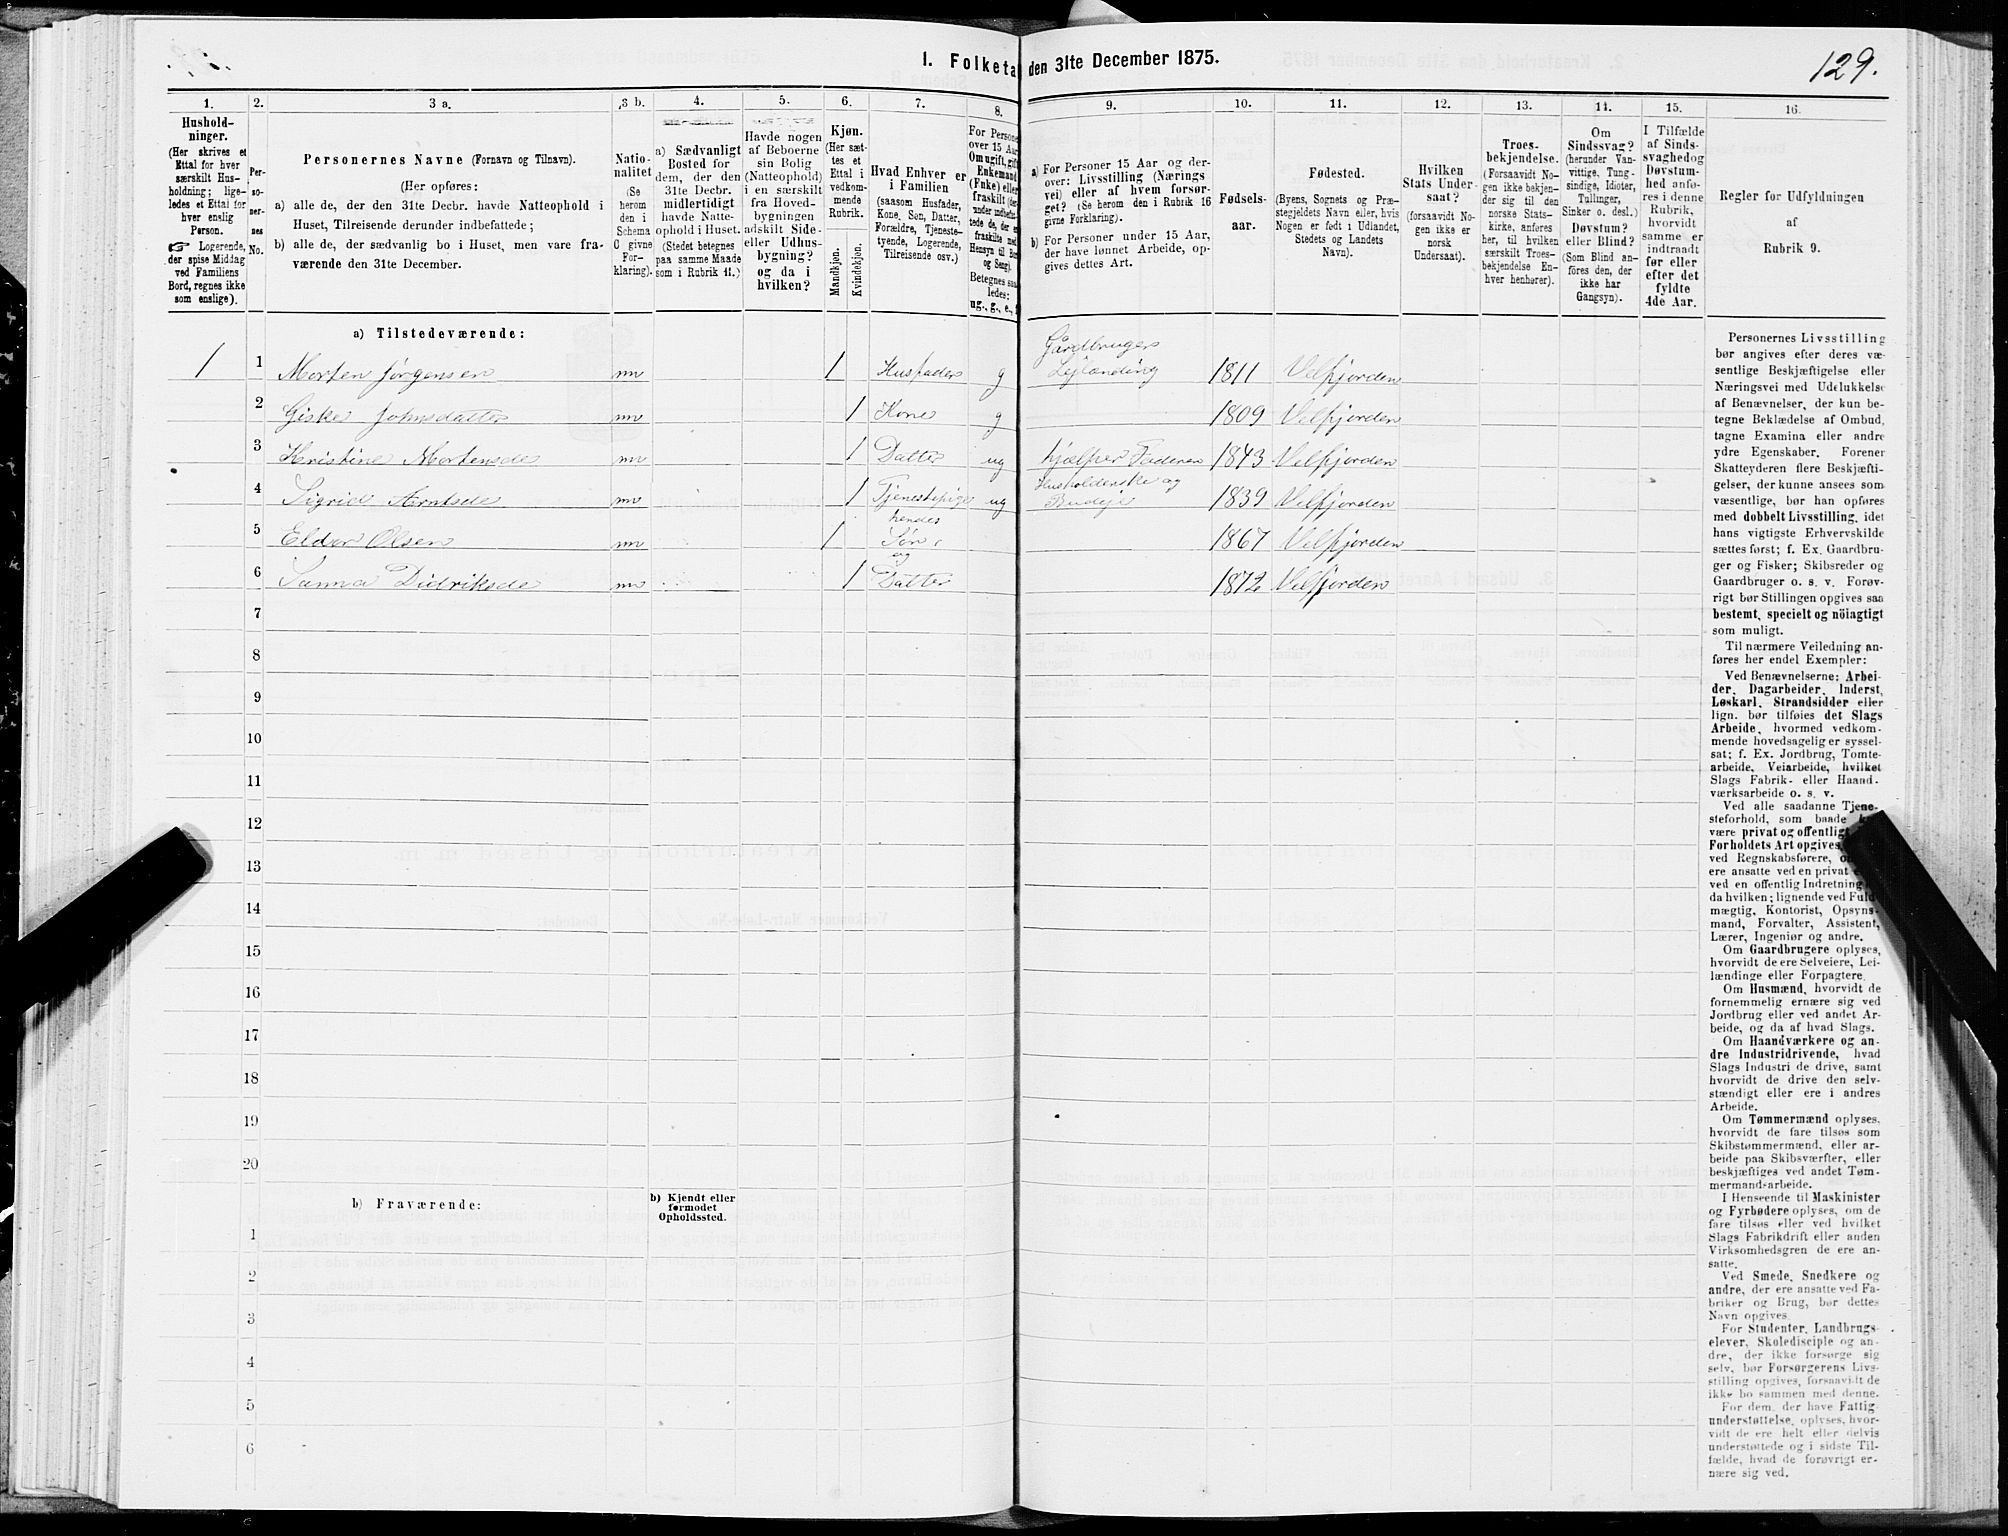 1. Folketa den 31te December 1875.
129.
1.
2.
3 a.
3 b.
4.
5.
6.
7.
8.
9.
10.
11.
12.
13.
14.
15.
16.
Hushold-
ninger.
(Her skrives et
Ettal for hver
særskilt Hus-
holdning; lige-
ledes et Ettal for
hver enslig
Person.
☞ Logerende,
der spise Middag
ved Familiens
Bord, regnes ikke
som enslige).
Per-
so-
ner-
nes
No.
Personernes Navne (Fornavn og Tilnavn).
(Her opføres:
a) alle de, der den 31te Decbr. havde Natteophold i
Huset, Tilreisende derunder indbefattede;
b) alle de, der sædvanlig bo i Huset, men vare fra-
værende den 31te December.
Natio-
nalitet
(Se
herom
den i
Schema
C givne
For-
klaring).
a) Sædvanligt
Bosted for
dem, der den
31te Decbr.
midlertidigt
havde Natte-
ophold i Huset.
(Stedet betegnes
paa samme Maade
som i Rubrik 11.)
Havde nogen
af Beboerne
sin Bolig
(Natteophold)
i en særskilt
fra Hoved-
bygningen
adskilt Side-
eller Udhus-
bygning?
og da i
hvilken?
Kjøn.
(Her sæt-
tes et
Ettal i
vedkom-
mende
Rubrik.
Mandkjøn.
Kvindekjøn.
Hvad Enhver er
i Familien
(saasom Husfader,
Kone, Søn, Datter,
Forældre, Tjeneste-
tyende, Logerende,
Tilreisende osv.)
For Persone
over 15 Aar
Om ugift, gift
Enkemand
(Enke) eller
fraskilt
Betegnes saa
ledes:
ug., g., e.,
a) For Personer 15 Aar og der-
over: Livsstilling (Nærings
vei) eller af hvem forsør-
get? (Se herom den i Rubrik 16
givne Forklaring).
b) For Personer under 15 Aar,
der have lønnet Arbeide, op-
gives dettes Art.
Fødsels-
aar.
Fødested.
(Byens, Sognets og Præ-
stegjeldets Navn eller, hvis
Nogen er født i Udlandet,
Stedets og Landets
Navn).
Hvilken
Stats Under-
saat?
(forsaavidt No-
gen ikke er
norsk
Undersaat).
Troes-
bekjendelse.
(Forsaavidt No-
gen ikke bekjen-
der sig til den
norske Stats-
kirke, anføres
her, til hvilken
særskilt Troes-
bekjendelse En-
hver henhører).
Om
Sindssvag?
(herunder Van-
vittige, Tung-
sindige, Idioter,
Tullinger,
Sinker o. desl.)
Døvstum?
eller Blind?
(Som Blind an-
føres den, der
ikke har
Gangsyn).
I Tilfælde
af Sinds-
svaghed og
Døvstum-
hed anfø-
res i denne
Rubrik,
hvorvidt
samme er
indtraadt
før eller
efter det
fyldte
4de Aar.
Regler for Udfyldningen
af
Rubrik 9.
a) Tilstedeværende:
1 1 Morten Jørgensen nn 1 Husfader g Gårdbruger Lejlænding 1811 Velfjorden
2 Giske Johnsdatter nn 1 Kone g 1809 Velfjorden
3 Kristine Mortensdr nn 1 Datter ug hjælper Faderen 1843 Velfjorden
4 Sigrid Arntsdr nn 1 Tjenestepige ug Husholderske og Budeje 1839 Velfjorden
5 Eldor Olsen nn 1 hendes Søn 1867 Velfjorden
6 Sanna Didriksdr nn 1 og Datter 1872 Velfjorden
7
8
9
10
11
12
13
14
15
16
17
18
19
20
b) Fraværende:
b) Kjendt eller
formodet
Opholdssted.
1
2
3
4
5
6
Personernes Livsstilling
bør angives efter deres væ-
sentlige Beskjæftigelse eller
Næringsvei med Udelukkelse
af Benævnelser, der kun be-
tegne Beklædelse af Ombud,
tagne Examina eller andre
ydre Egenskaber. Forener
Skatteyderen flere Beskjæfti-
gelser, der kunne ansees som
væsentlige, bør han opføres
med dobbelt Livsstilling, idet
hans vigtigste Erhvervskilde
sættes først; f. Ex. Gaardbru-
ger og Fisker; Skibsreder og
Gaardbruger o. s. v. Forøv-
rigt bør Stillingen opgives saa
bestemt, specielt og nöiagtigt
som muligt.
Til nærmere Veiledning an-
føres her endel Exempler:
Ved Benævnelserne: Arbei-
der, Dagarbeider, Inderst,
Løskarl, Strandsidder eller
lign. bør tilføies det Slags
Arbeide, hvormed vedkom-
mende hovedsagelig er syssel-
sat; f. Ex. Jordbrug, Tomte-
arbeide, Veiarbeide, hvilket
Slags Fabrik- eller Haand-
værksarbeide o. s. v.
Ved alle saadanne Tjene-
steforhold, som baade
være privat og offentligt,
Forholdets Art opgives,
ved Regnskabsførere,
ere ansatte ved en privat
ved en offentlig Indretning
da hvilken; lignende ved Fuld
mægtig, Kontorist, Opsyns-
mand, Forvalter, Assistent,
Lærer, Ingeniør og andre.
Om Gaardbrugere oplyses,
hvorvidt de ere Selveiere, Lei-
lændinge eller Forpagtere.
Om Husmænd, hvorvidt de
fornemmelig ernære sig ved
Jordbrug eller ved andet Ar-
beide, og da af hvad Slags.
Om Haandværkere og an-
dre Industridrivende, hvad
Slags Industri de drive, samt
hvorvidt de drive den selv-
stændigt eller ere i andres
Arbeide.
Om Tømmermænd oplyses,
hvorvidt de fare tilsøs som
Skibstømmermænd, eller ar-
beide paa Skibsværfter, eller
beskjæftiges ved andet Tøm-
mermandsarbeide.
I Henseende til Maskinister
og Fyrbødere oplyses, om de
fare tilsøs eller ved hvilket
Slags Fabrikdrift eller anden
Virksomhedsgren de ere an-
satte.
Ved Smede, Snedkere og
andre, der ere ansatte ved Fa-
briker og Brug, bør dettes
Navn opgives.
For Studenter, Landbrugs-
elever, Skoledisciple og an-
dre, der ikke forsørge sig
selv, bør Forsørgerens Livs-
stilling opgives, forsaavidt de
ikke bo sammen med denne.
For dem, der have Fattig-
understøttelse, oplyses, hvor-
vidt de ere helt eller delvis
understøttede og i sidste Til-
fælde, hvad de forøvrigt er-
nære sig ved.